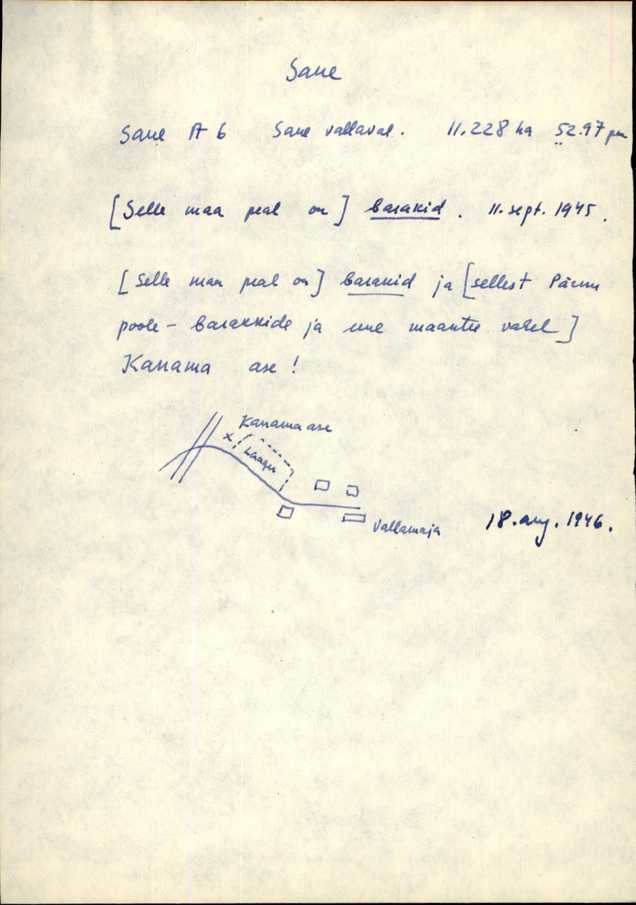 Saue
Saue A 6 Saue vallaval. 11.228 ha 52.97
[Selle maa peal on] barakid. 11. sept. 1945.
[Selle maa peal on] barakid ja [sellest Pärnu
poole - barakkide ja uue maantee vahel]
Kanama ase!
Kanama ase
x
Laager
Vallamaja
18. aug. 1946.